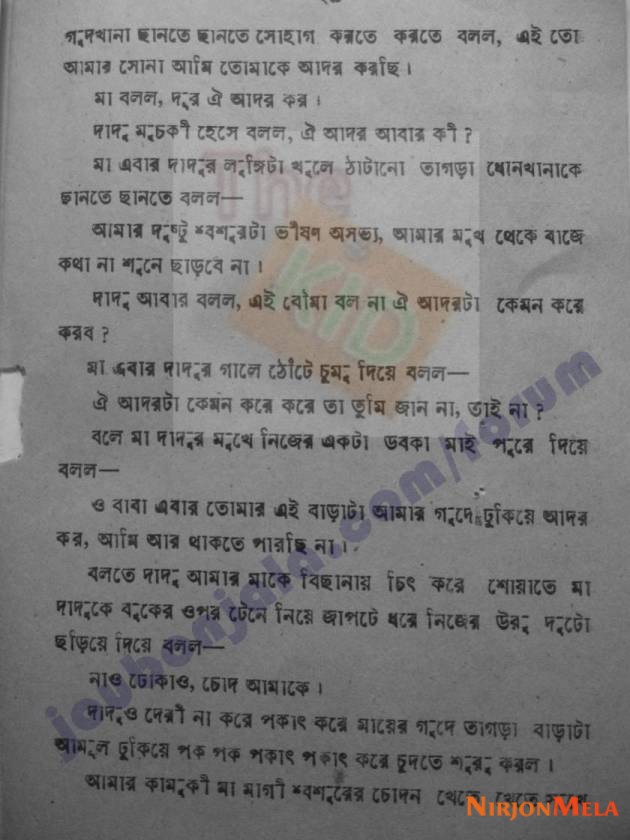 গুদখানা ছানতে ছানতে সোহাগ করতে করতে বলল, এই তো
আমার সোনা আমি তোমাকে আদর করছি।
মা বলল, দূর ঐ আদর কর।
দাদু মুচকী হেসে বলল, ঐ আদর আবার কী?
মা এবার দাদুর লুঙ্গিটা খুলে ঠাটানো তাগড়া ধোনখানাকে
ছানতে ছানতে বলল—
আমার দুষ্টু শ্বশুরটা ভীষণ অসভ্য, আমার মুখ থেকে বাজে
কথা না শুনে ছাড়বে না।
দাদু আবার বলল, এই বৌমা বল না ঐ আদরটা কেমন করে
করব?
মা এবার দাদুর গালে ঠোঁটে চুমু দিয়ে বলল—
ঐ আদরটা কেমন করে করে তা তুমি জান না, তাই না?
বলে মা দাদুর মুখে নিজের একটা ডবকা মাই পুরে দিয়ে
বলল—
ও বাবা এবার তোমার এই বাড়াটা আমার গুদে ঢুকিয়ে আদর
কর, আমি আর থাকতে পারছি না।
বলতে দাদু আমার মাকে বিছানায় চিৎ করে শোয়াতে মা
দাদুকে বুকের ওপর টেনে নিয়ে জাপটে ধরে নিজের উরু দুটো
ছড়িয়ে দিয়ে বলল—
নাও ঢোকাও, চোদ আমাকে।
দাদুও দেরী না করে পকাৎ করে মায়ের গুদে তাগড়া বাড়াটা
আমূল ঢুকিয়ে পক পক পকাৎ পকাৎ করে চুদতে শুরু করল।
আমার কামুকী মা মাগী শ্বশুরের চোদন খেতে খেতে
The
KID
joubonjala.com/forum
NIRJONMELA